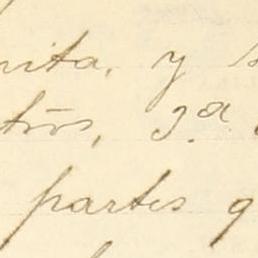 nita, y
tros, 3.ª
partes q